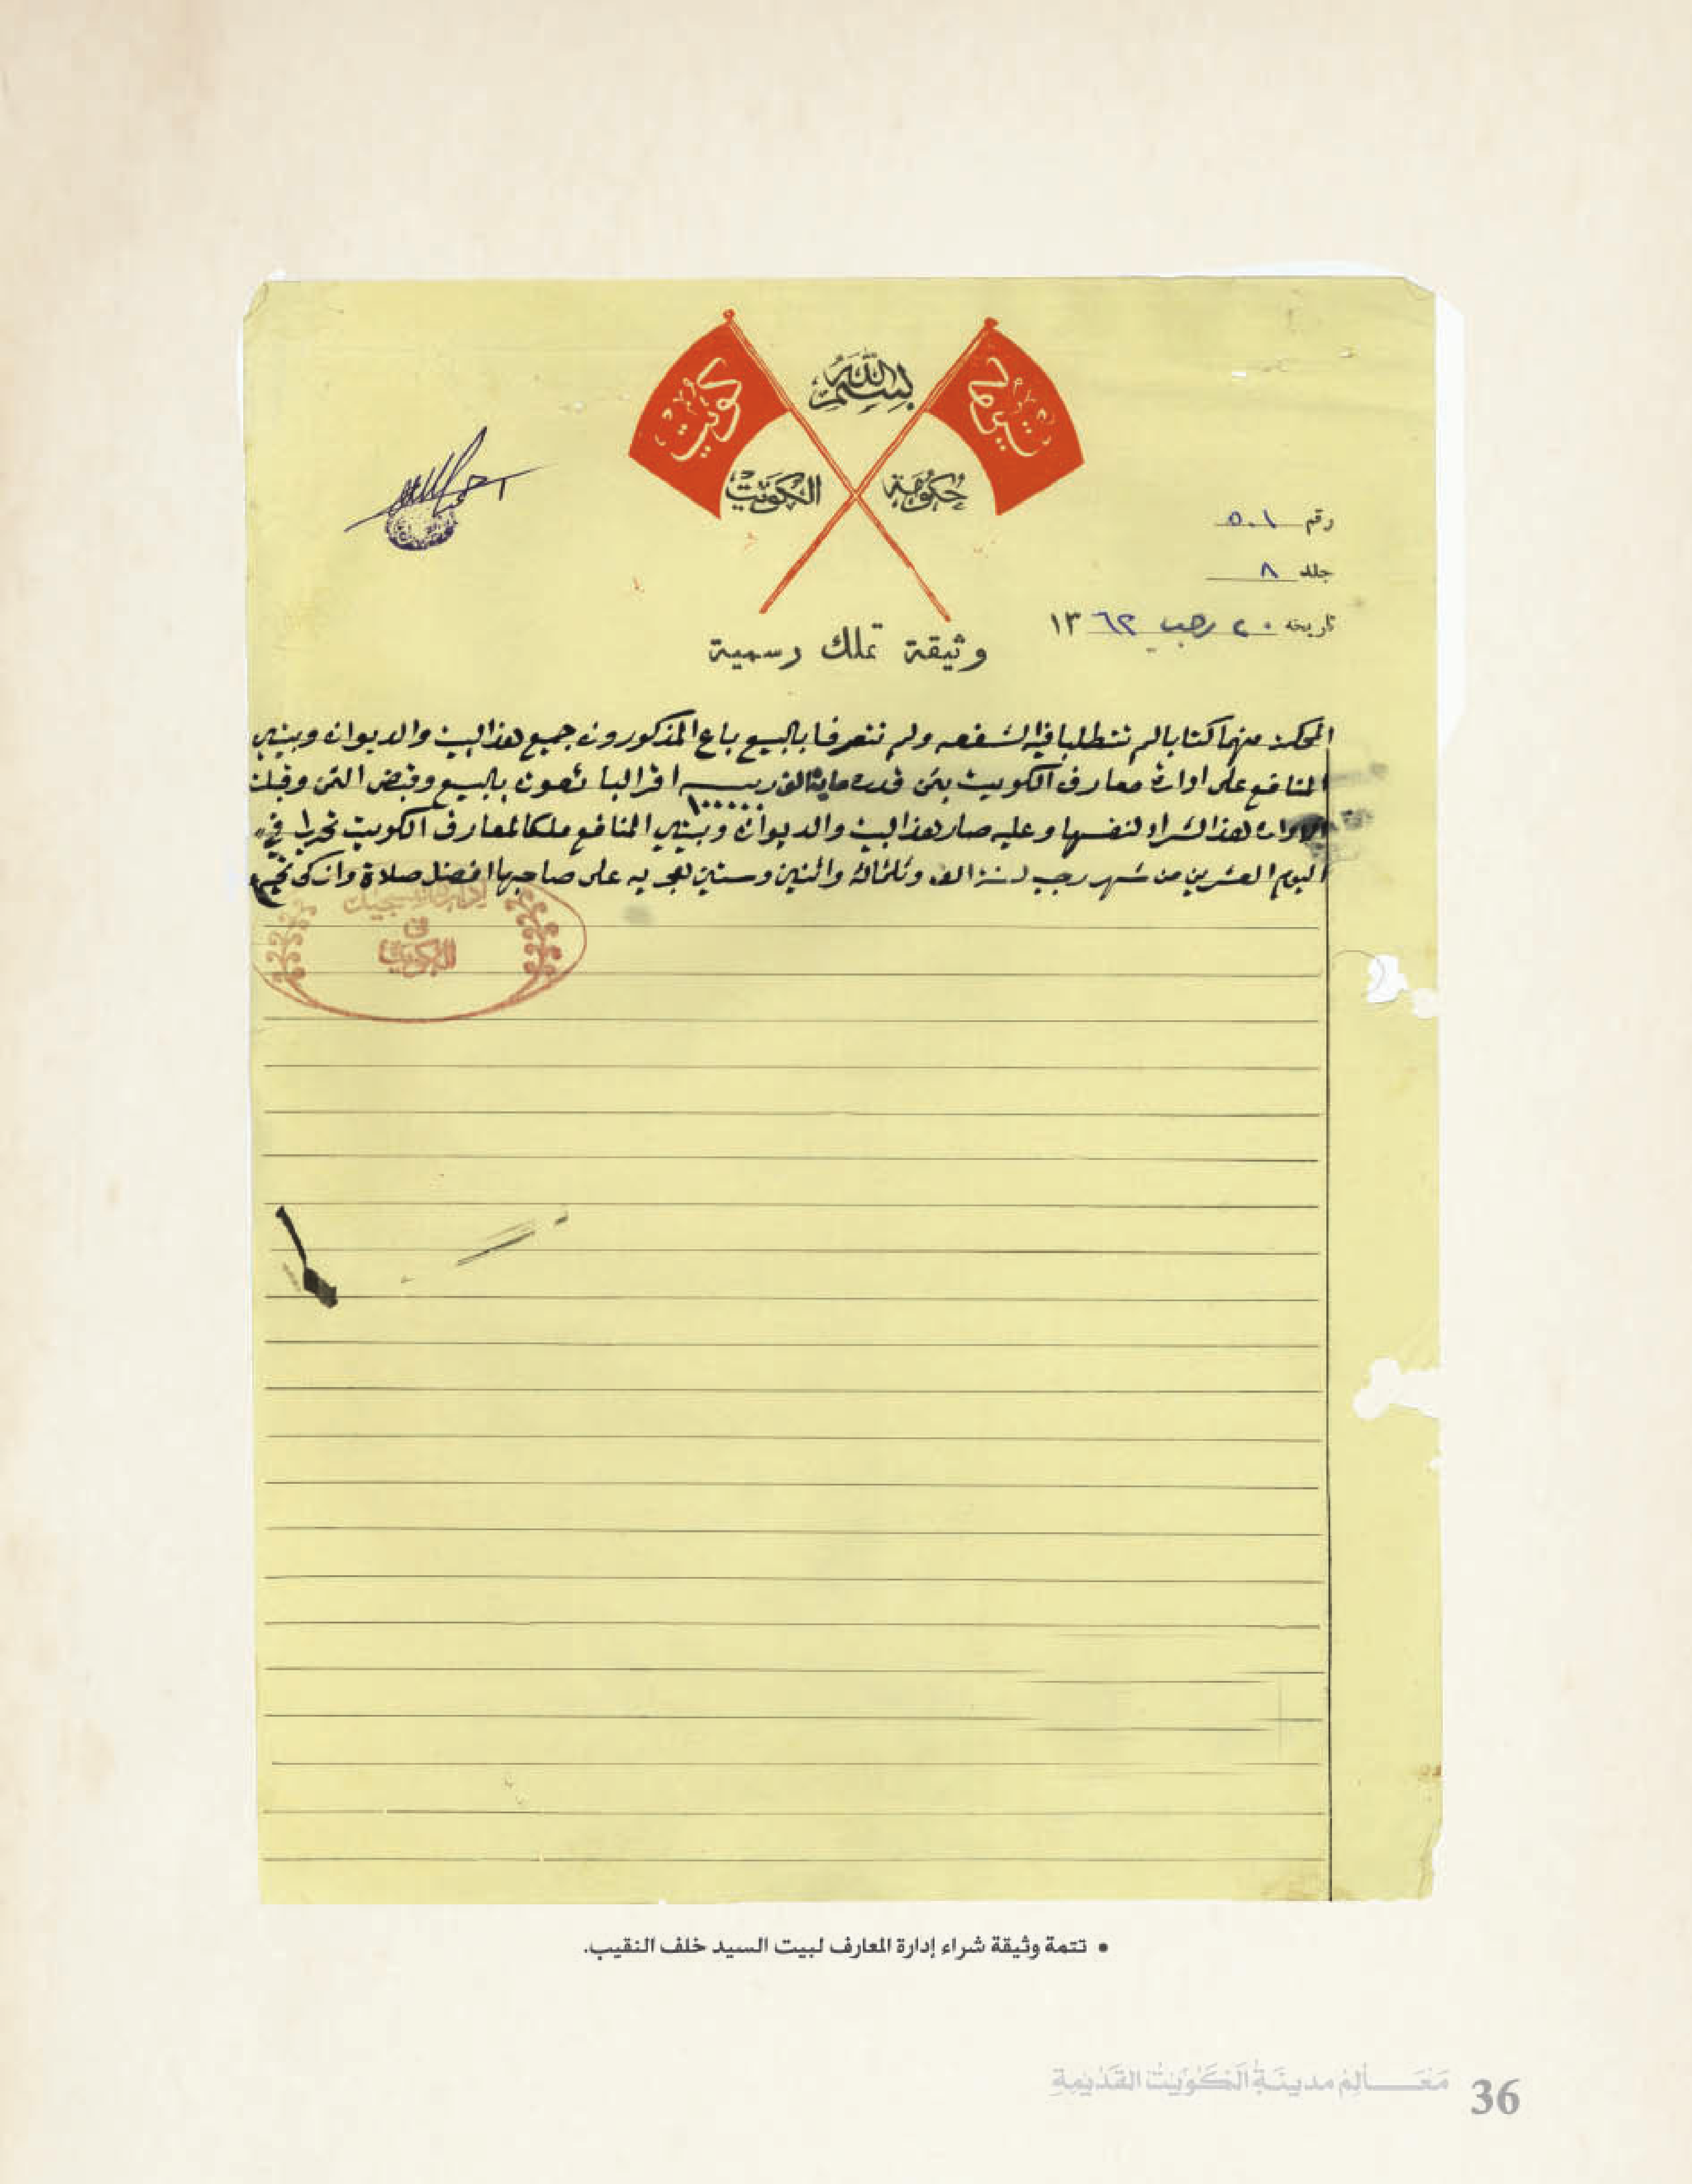 بسم الله
كويت
كويت
حكومة الكويت
رقم ٥٠١
جلد ٨
تاريخه ٢٠ رجب ١٣٦٢
وثيقة تملك رسمية
منهما كتابا لم تتطلبا فيه الشفعه ولم تتعرفا بالبيع باع المذكورون جميع هذا البيت والديوان وبيتي
المنافع على ادارة معارف الكويت بثمن قدره ماية الف ربيه اقر البائعون بالبيع وقبض الثمن وقبلت
١٠٠٠٠٠
الاداره هذا الشراء لنفسها وعليه صار هذا البيت والديوان وبيتي المنافع ملكا لمعارف الكويت تحريرا في
اليوم العشرين من شهر رجب لسنة الف وثلثمائة واثنين وستين هجريه على صاحبها افضل صلاة وازكى تحيه
إدارة التسجيل
في
الكويت
• تتمة وثيقة شراء إدارة المعارف لبيت السيد خلف النقيب.
مَعَالِمُ مدينَةِ الكُوَيْتِ القَدِيمَةِ
36